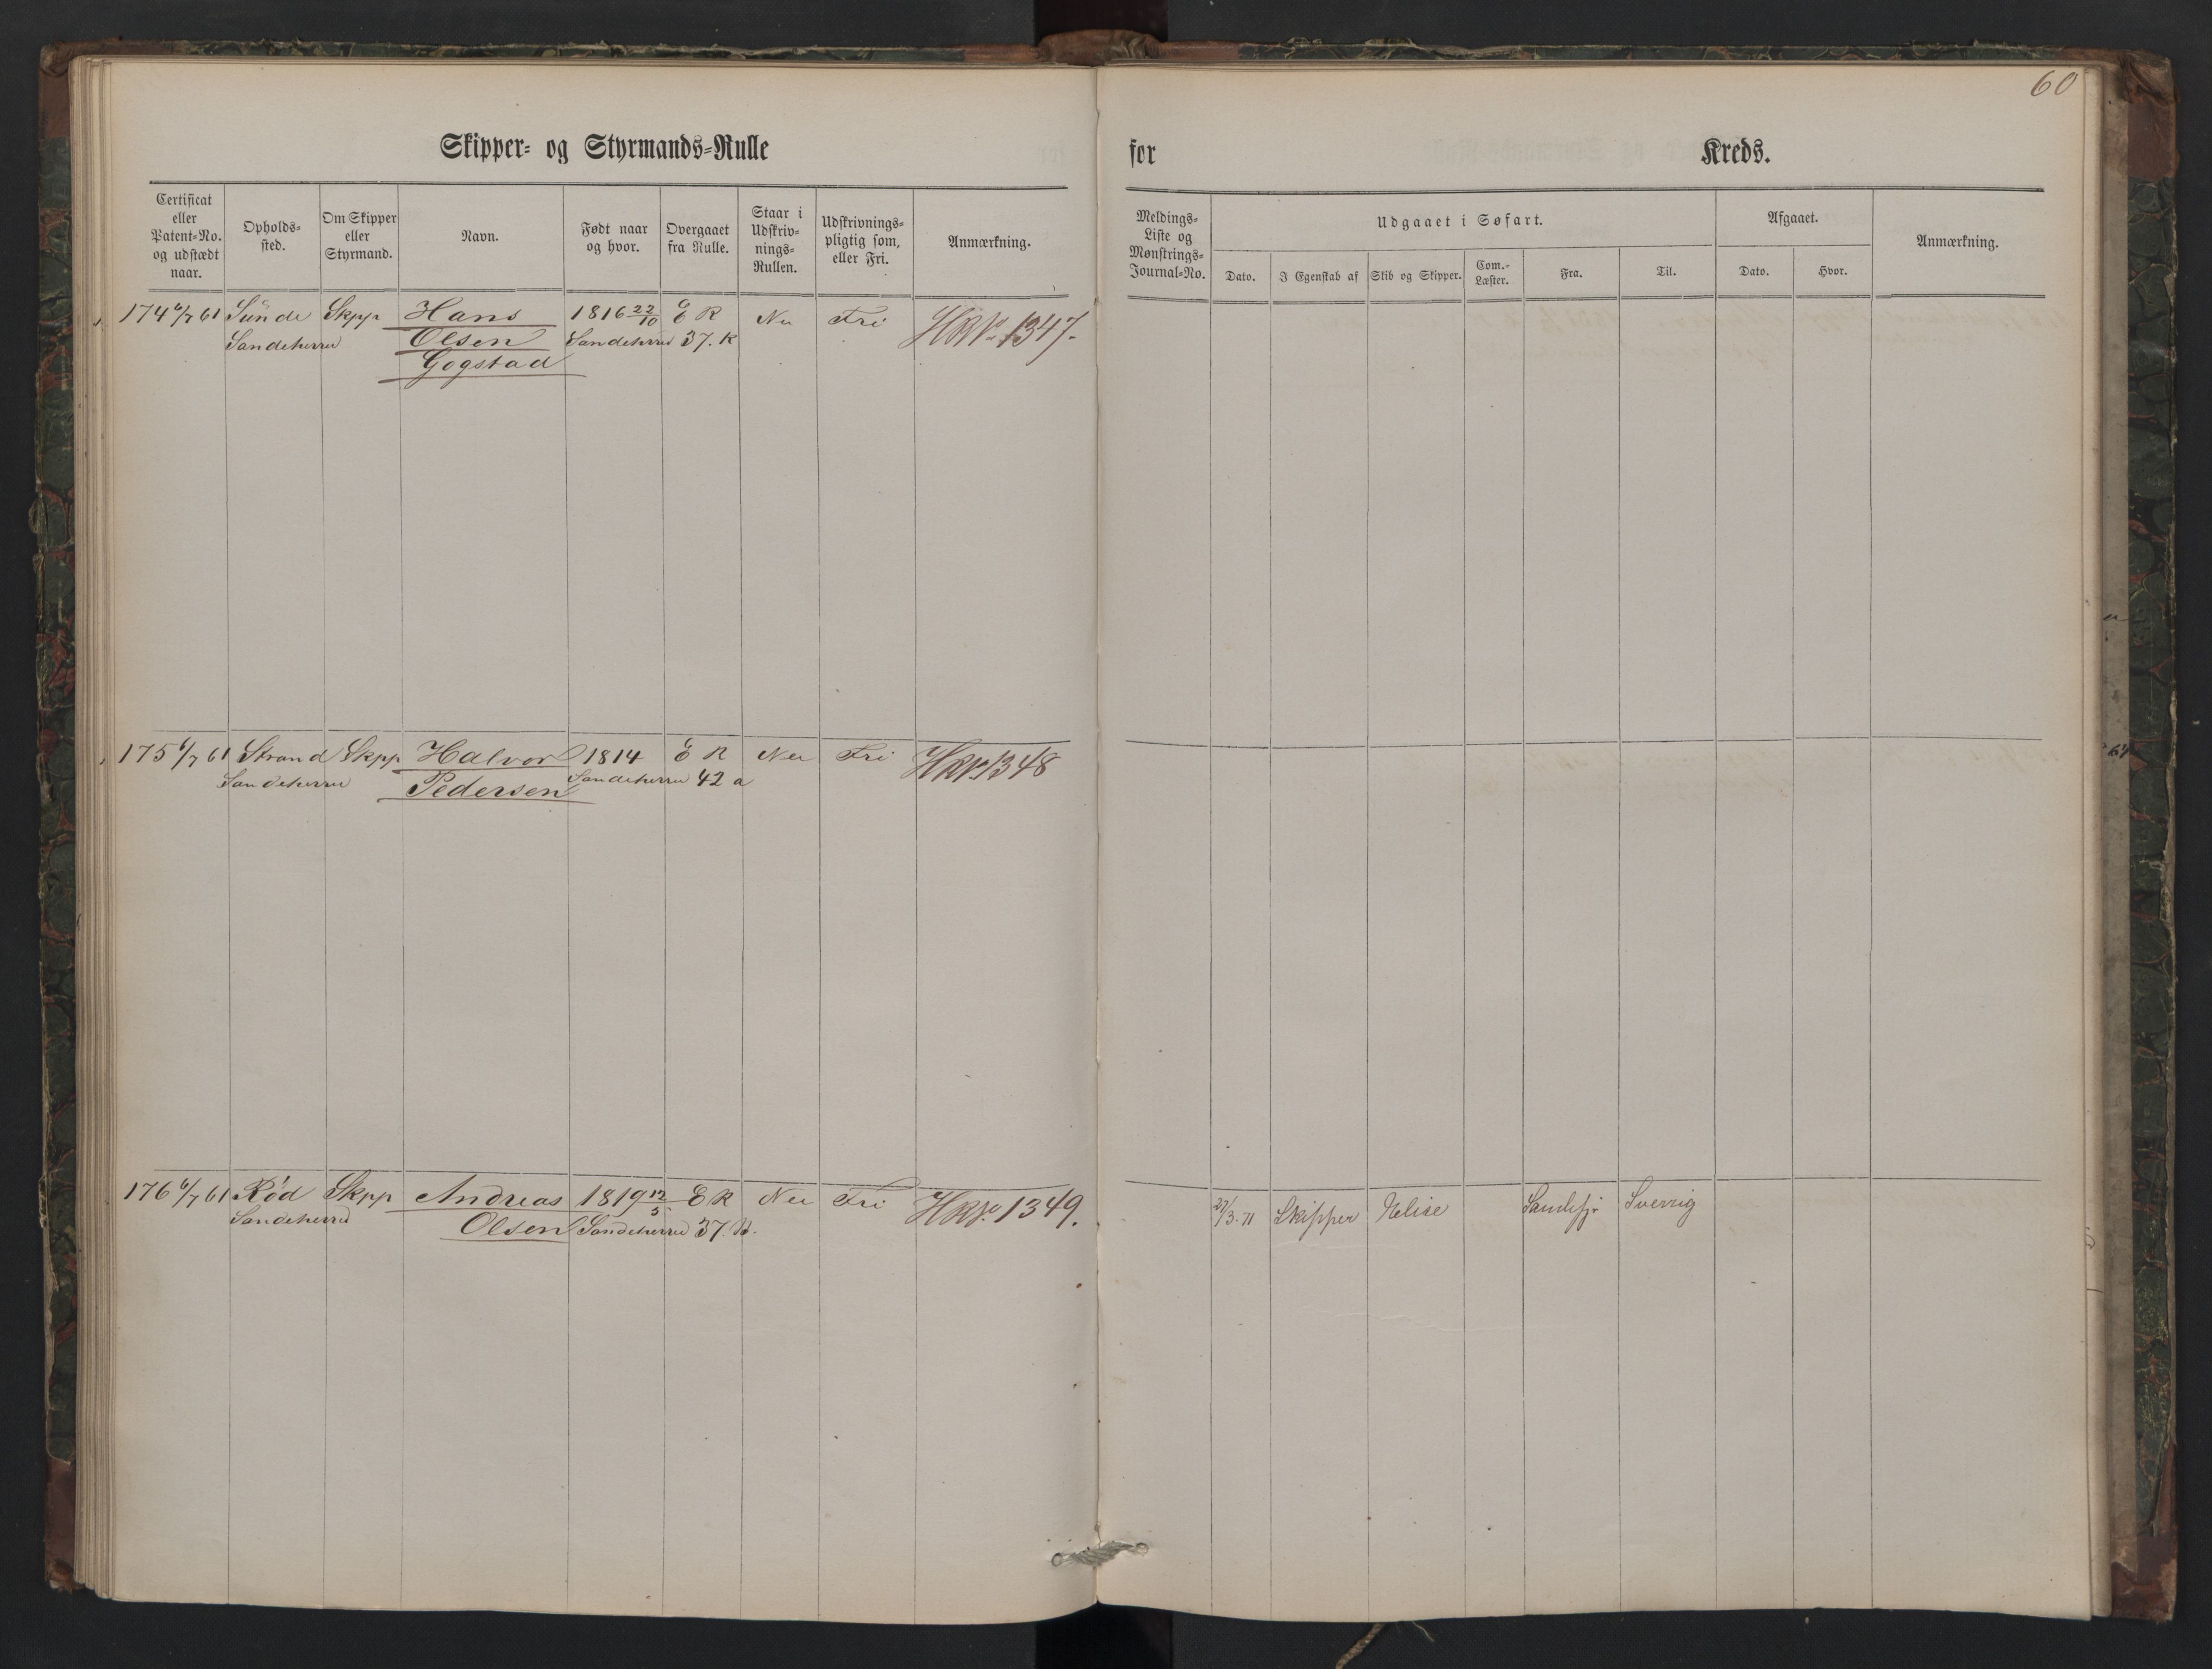 60
Skipper- og Styrmands-Rulle
for Kreds.
Certificat eller Patent-No. og udstædt naar.
Opholds-sted.
Om Skipper eller Styrmand.
Navn.
Født naar og hvor.
Overgaaet fra Rulle.
Staar i Udskriv-nings-Rullen.
Udskrivnings-pligtig som, eller Fri.
Anmærkning.
Meldings-Liste og Mønstrings-Journal-No.
Udgaaet i Søfart.
Dato.
I Egenskab af
Skib og Skipper.
Com.-Læster.
Fra.
Til.
Afgaaet.
Dato.
Hvor.
Anmærkning.
174 6/7 61 Sunde Skpp Hans 1816 22/10 E R Nei Fri HR No 1347.
Sandeherred Olsen Sandeherred 37. R
Gogstad
175 6/7 61 Strand Skpp Halvor 1814 E R Nei Fri HR No 1348
Sandeherred Pedersen Sandeherred 42 a
176 6/7 61 Rød Skpp Andreas 1819 12/5 E R Nei Fri HR No. 1349. /3.71 Skipper Sandefj. Sverrig
Sandeherred Olsen Sandeherred 37.